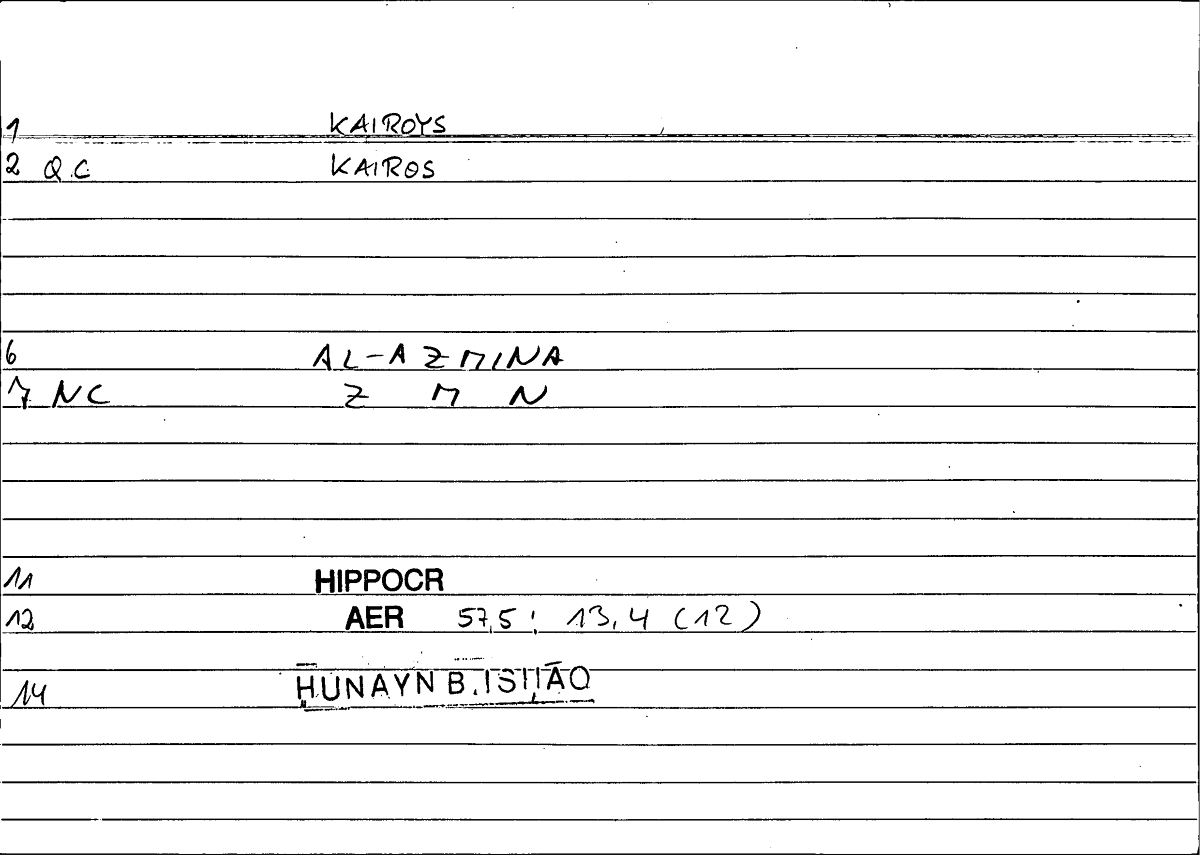 1 KAIROYS
2 Q.C KAIROS
6 AL-AZMINA
7 NC Z M N
11 HIPPOCR
12 AER 57,5; 13,4 (12)
14 ḤUNAYN B. ISḤĀQ